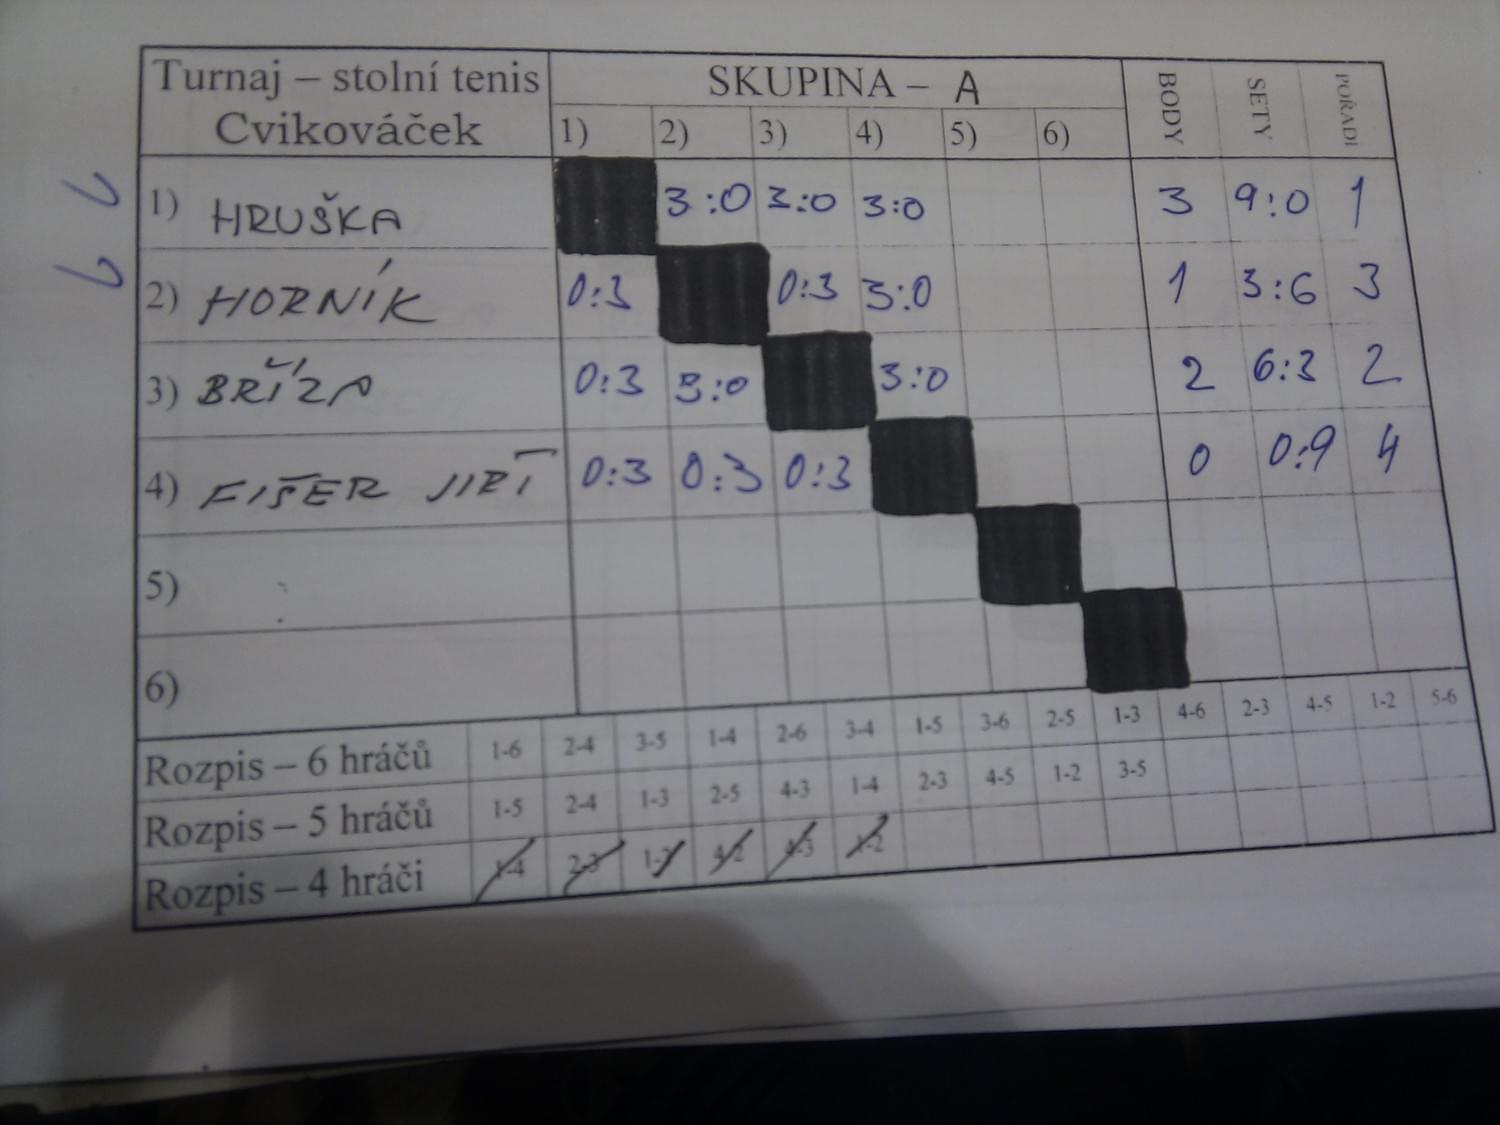 Turnaj – stolní tenis
Cvikováček
SKUPINA – A
BODY SETY POŘADÍ
1) 2) 3) 4) 5) 6)
1) HRUŠKA 3:0 3:0 3:0 3 9:0 1
2) HORNÍK 0:3 0:3 3:0 1 3:6 3
3) BŘÍZA 0:3 3:0 3:0 2 6:3 2
4) FIŠER JIŘÍ 0:3 0:3 0:3 0 0:9 4
5)
6)
Rozpis – 6 hráčů 1-6 2-4 3-5 1-4 2-6 3-4 1-5 3-6 2-5 1-3 4-6 2-3 4-5 1-2 5-6
Rozpis – 5 hráčů 1-5 2-4 1-3 2-5 4-3 1-4 2-3 4-5 1-2 3-5
Rozpis – 4 hráči 1-4 2-3 4-2 4-3 1-2